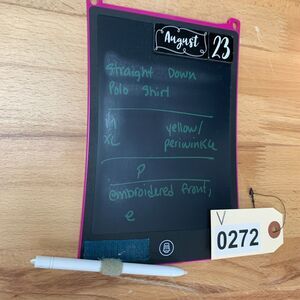 August 23
Straight Down
Polo Shirt
M yellow/
XL periwinkle
P
embroidered front,
e
V
0272